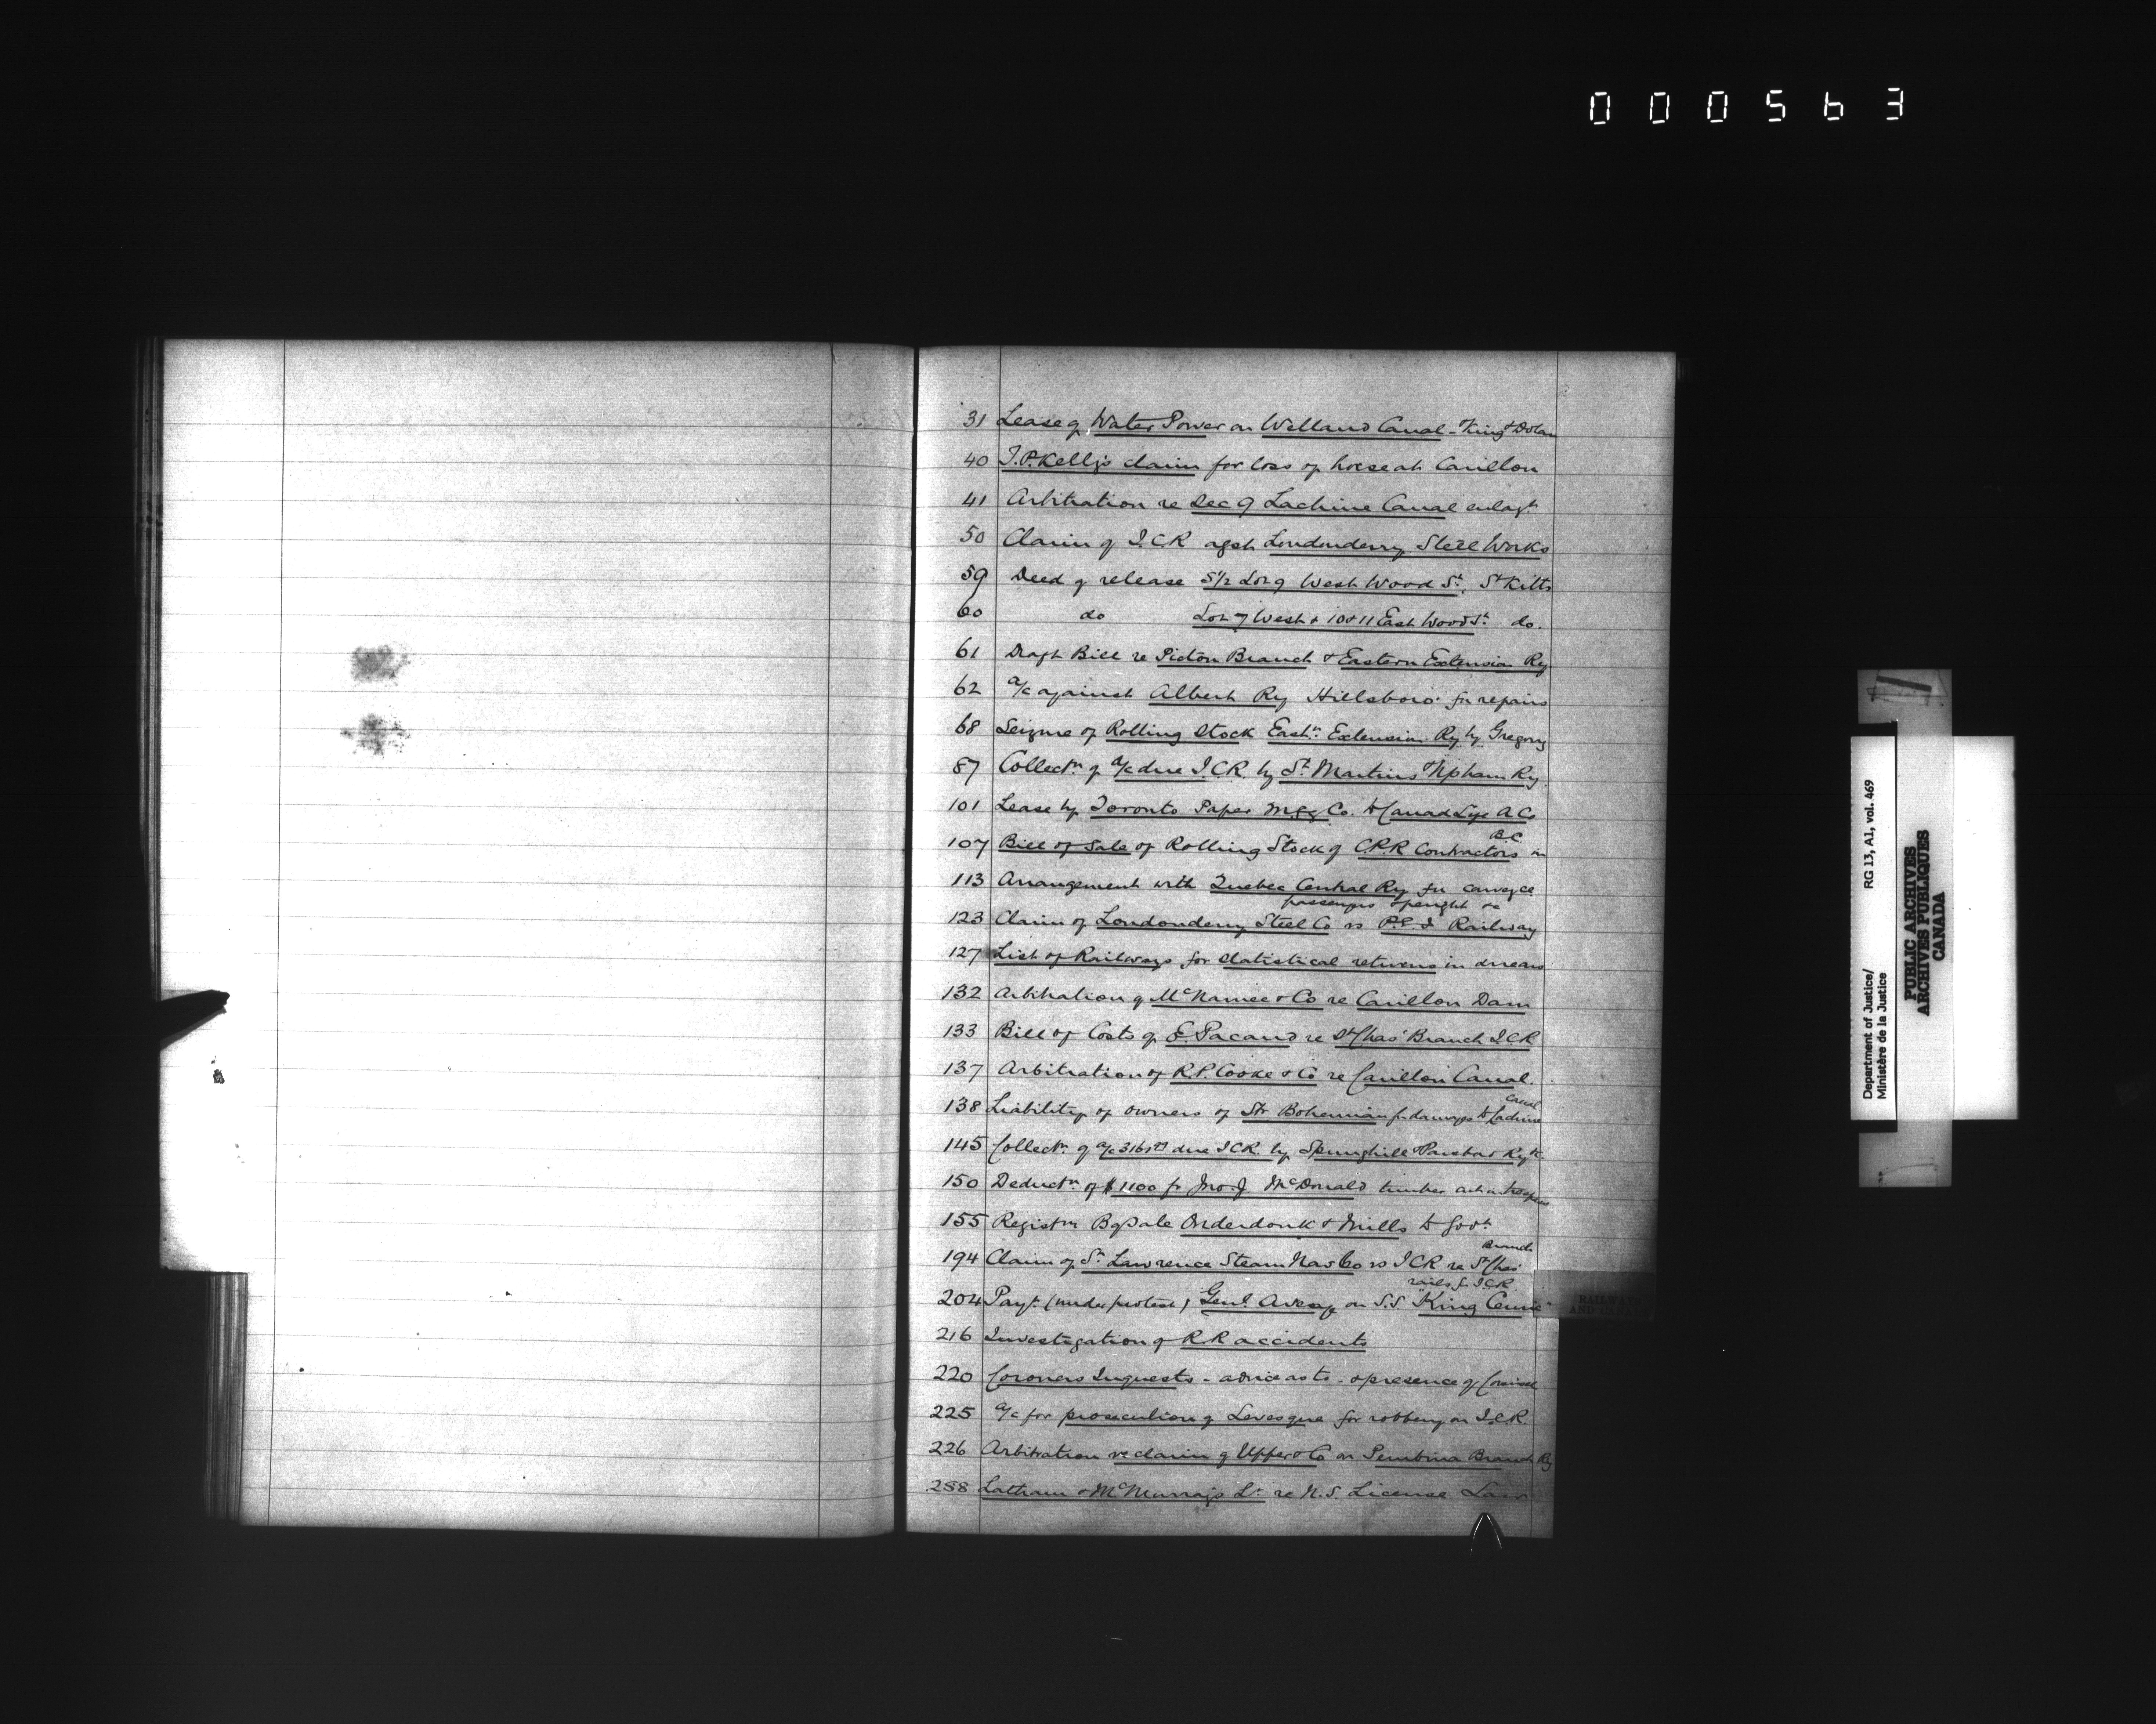 000563
31 Lease of Water Power on Welland Canal - King & Dolan
40 J.P. Kelly's claim for loss of horse at Carillon
41 Arbitration re Sec 9 Lachine Canal enlagt
50 Claim of I.C.R agst Londonderry Steel Works
59 Deed of release S1/2 Lot 9 West Wood St. St Kitts
60 do Lot 7 West & 10 & 11 East Wood St do.
61 Draft Bill re Pictou Branch & Eastern Extension Ry
62 a/c against Albert Ry Hillsboro' for repairs
68 Seizure of Rolling Stock Eastn Extension Ry by Gregory
87 Collectn of a/c due I.C.R. by St Martins & Upham Ry
101 Lease by Toronto Paper Mfg Co. to Canad
107 Bill of Sale of Rolling Stock of C.P.R Contractors in B.C.
113 Arrangement with Quebec Central Ry for conveyce
passengers & freight &c
123 Claim of Londonderry Steel Co vs P.E.I Railway
127 List of Railways for statistical returns in arrears
132 Arbitration of McNamee & Co re Carillon Dam
133 Bill of Costs of E. Pacaud re St Chas' Branch I.C.R
137 Arbitration of R.P. Cooke & Co re Carillon Canal.
138 Liability of owners of Str Bohemian for damages to Lachine Canal
145 Collectn of a/c due ICR. by Springhill & Parsboro Ry &c
150 Deductn of $1100 fr Jno. J. McDonald timber cut in trespass
155 Registrn B of Sale Onderdonk & Mills to Govt
194 Claim of St Lawrence Steam Nav Co vs ICR re St Chas' Branch
204 Payt (under protest) Genl Average on S.S "King Cemi" rails for ICR
216 Investigation of R.R accidents
220 Coroners Inquests - advice as to - & presence of Counsel
225 a/c for prosecution of Levesque for robbery on I.C.R.
226 Arbitration re claim of Upper & Co on Pembina Branch Ry
258 Latham & McMurray's Lr re N.S. License Law
RAILWAYS
AND CANALS
Department of Justice/
Ministère de la Justice
RG 13, A1, vol. 469
PUBLIC ARCHIVES
ARCHIVES PUBLIQUES
CANADA